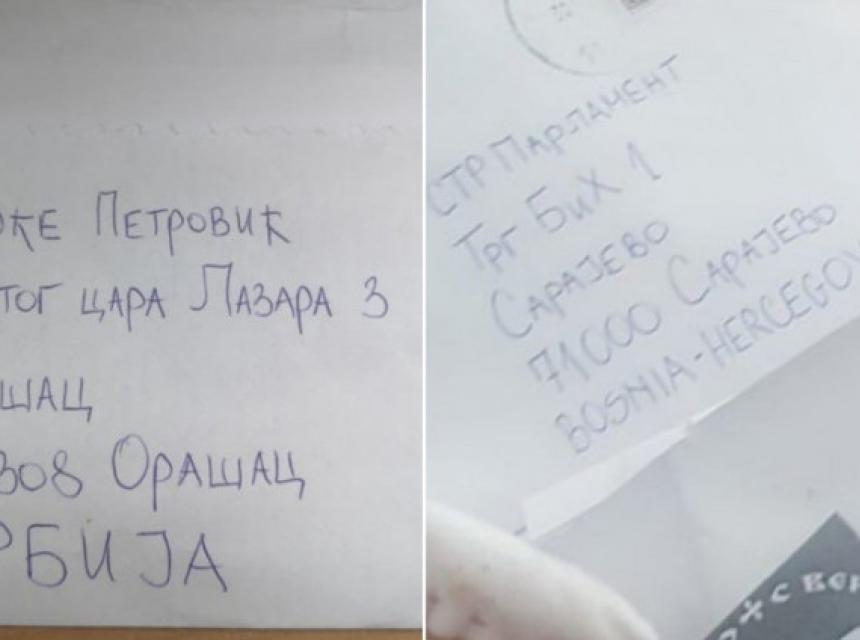 ОКЕ ПЕТРОВИЋ
ТОГ ЦАРА ЛАЗАРА 3
ШАЦ
308 ОРАШАЦ
РБИЈА
СТР ПАРЛАМЕНТ
ТРГ БИХ 1
САРАЈЕВО
71000 САРАЈЕВО
BOSNIA-HERCEGOV